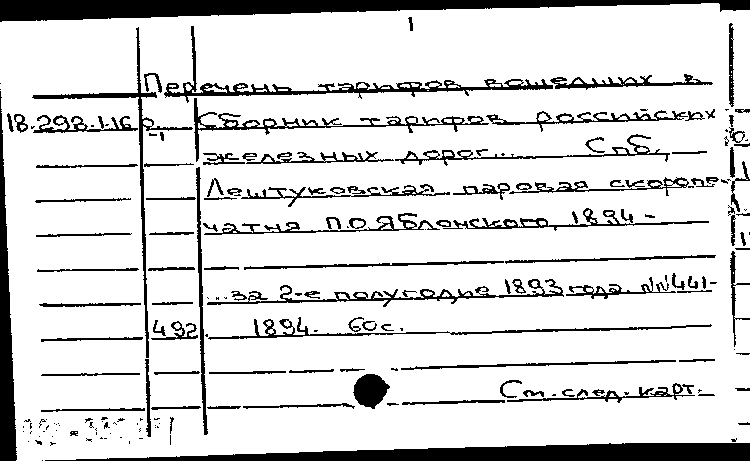 1
Перечень тарифов, вошедших в
18.298.1.16 Сборник тарифов российских
железных дорог... Спб.,
Лештуковская паровая скоропе-
чатня П.О.Яблонского, 1894 -
...за 2-е полугодие 1893 года. №№441-
492. 1894. 60с.
См. след. карт.